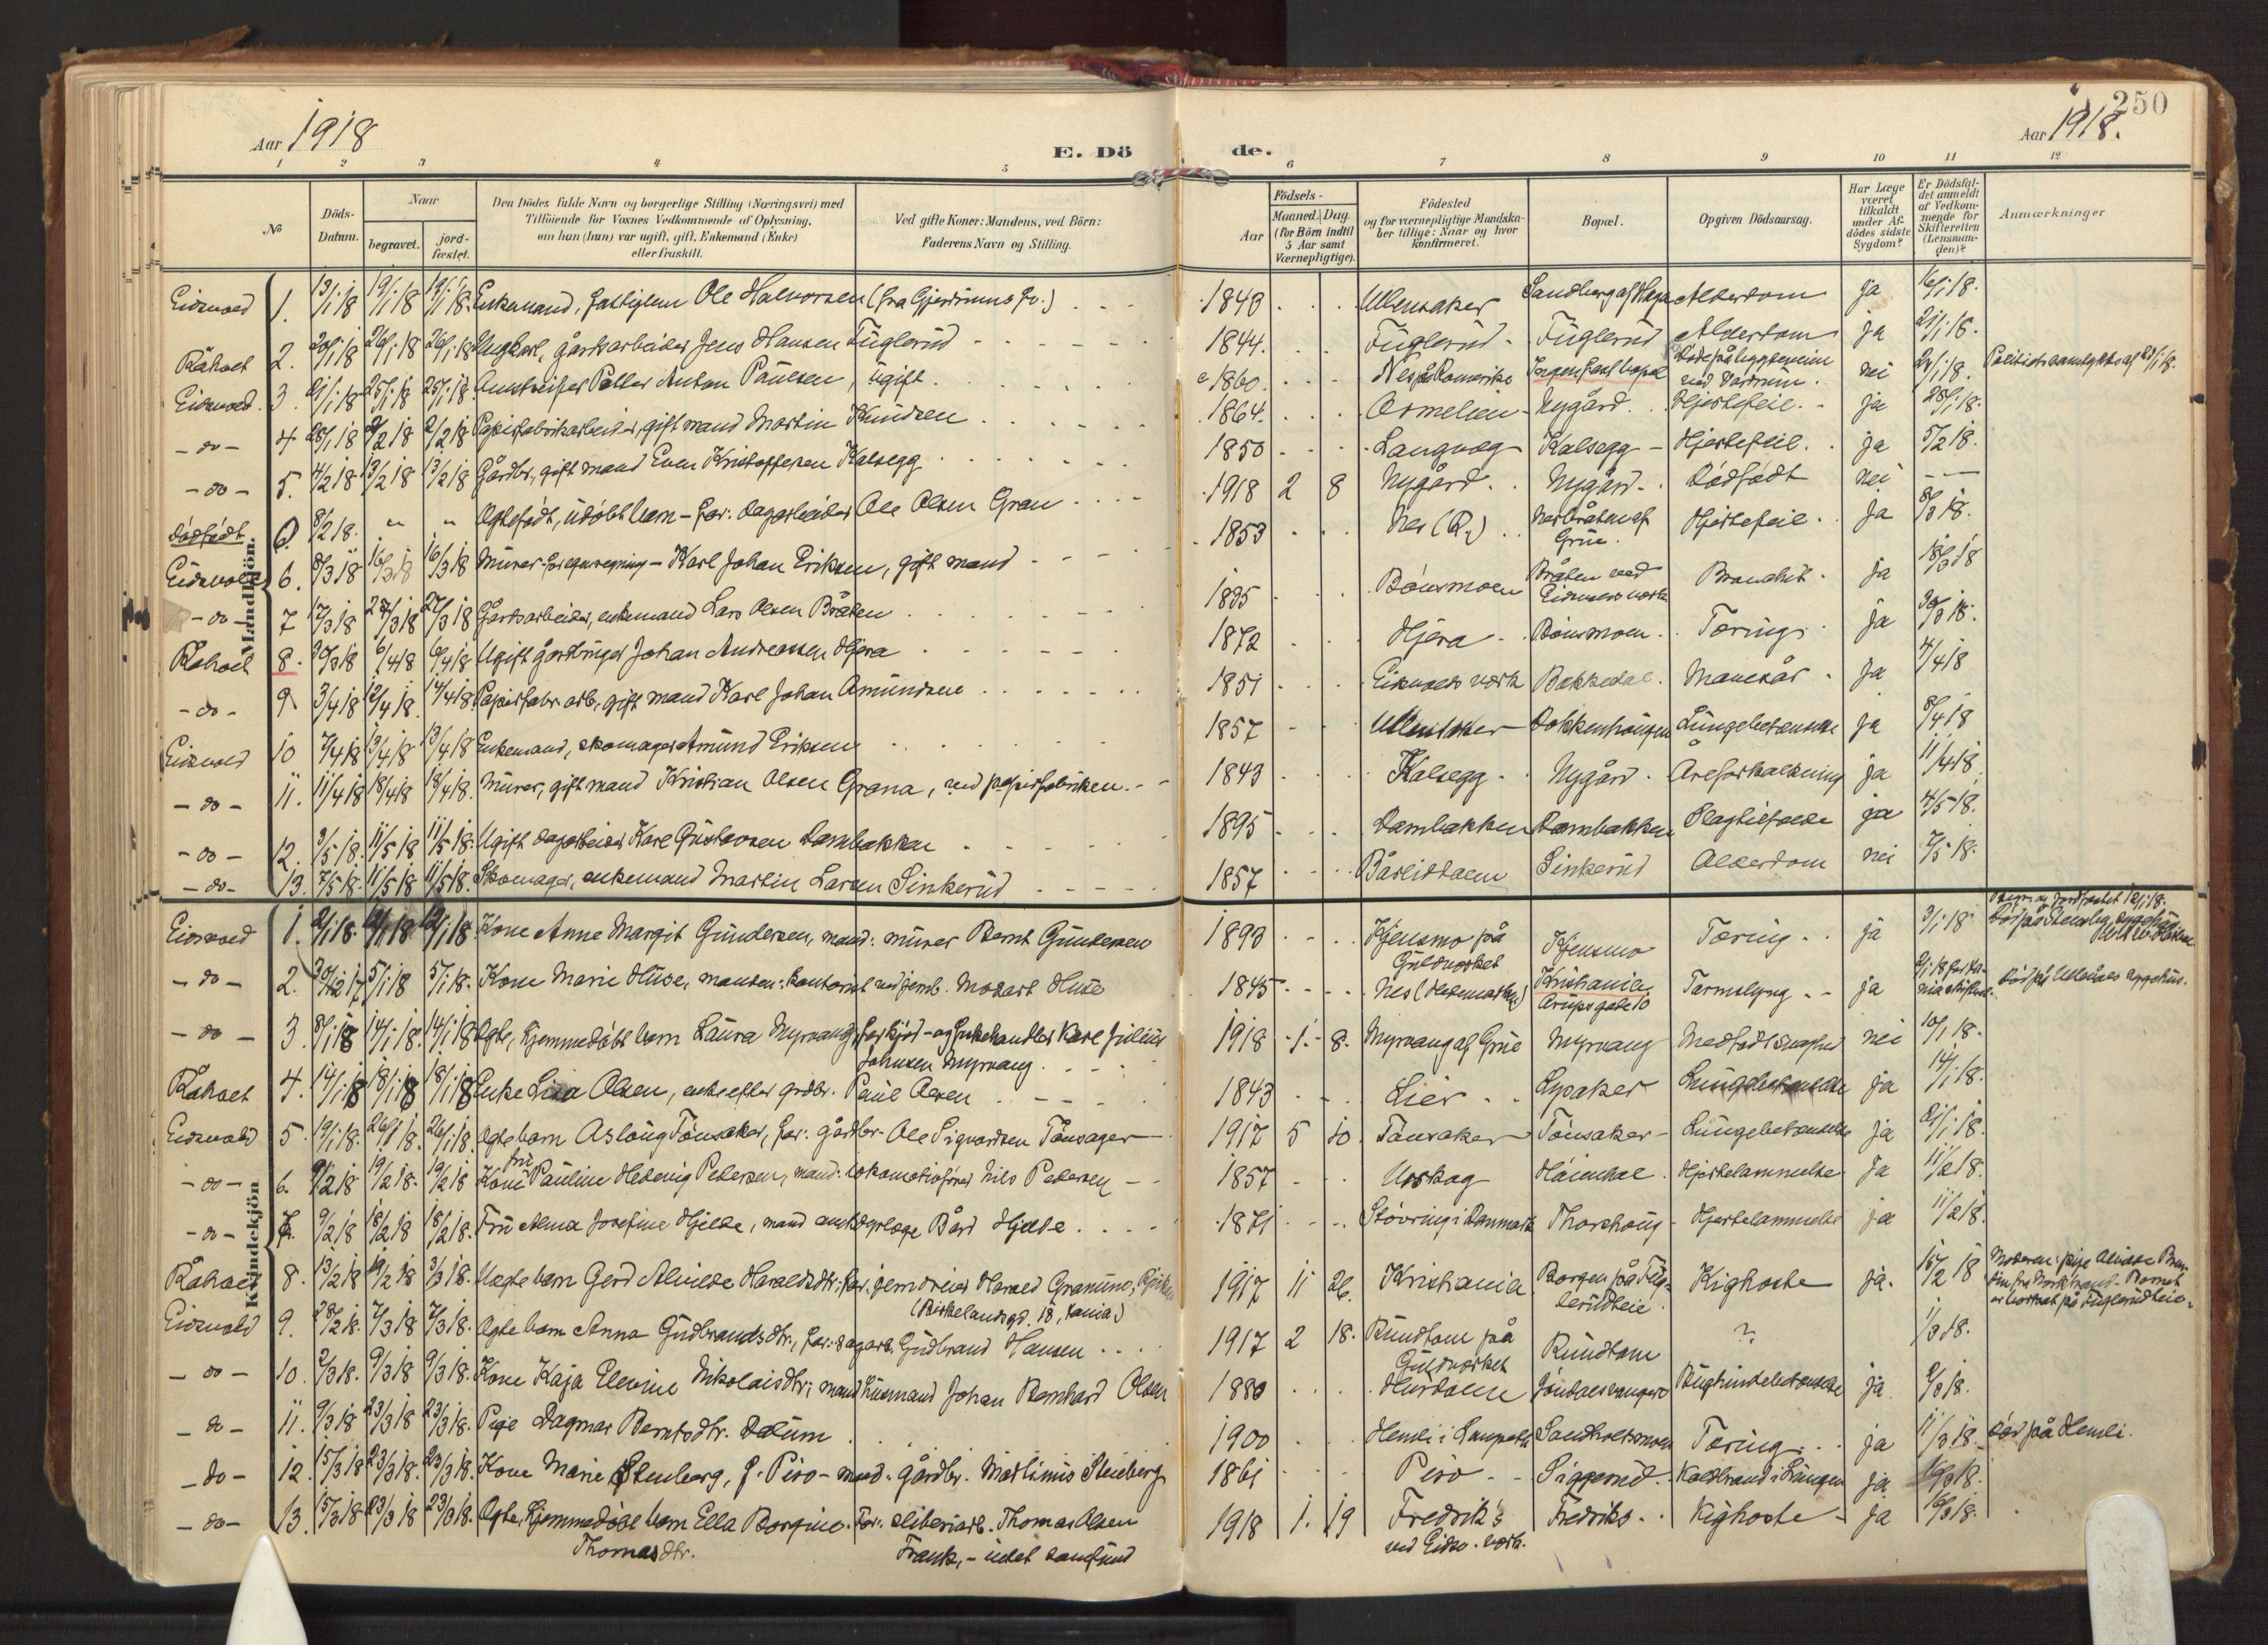 250
Aar 1918
E. Dö
de.
Aar 1918.
1 2 3 4 5 6 7 8 9 10 11 12
No
Döds-Datum.
Naar
begravet.
jord-fæstet.
Den Dödes fulde Navn og borgerlige Stilling (Næringsvei) med
Tilföiende for Voxnes Vedkommende af Oplysning,
om han (hun) var ugift, gift, Enkemand (Enke)
eller fraskilt.
Ved gifte Koner: Mandens, ved Börn:
Faderens Navn og Stilling.
Födsels-
Aar
Maaned. Dag
(for Börn indtil
5 Aar samt
Værnepligtige).
Födested
og for værnepligtige Mandska-
ber tillige: Naar og hvor
konfirmeret.
Bopæl.
Opgiven Dödsaarsag.
Har Læge
været
tilkaldt
under Af-
dödes sidste
Sygdom?
Er Dödsfal-
det anmeldt
af Vedkom-
mende for
Skifteretten
(Lensman-
den)?
Anmærkninger
Mandkjön.
Eidsvold 1. 13/1 18 19/1 18 19/1 18. Enkemand, fattiglem Ole Halvorsen (fra Gjerdrums hr.) 1843 Ullensaker Sandberg af Haga Alderdom ja 16/1 18.
Råholt 2. 20/1 18 26/1 18 26/1 18 Ungkarl, gårdsarbeider Jens Hansen Fuglerud 1844. Fuglerud Fuglerud Alderdom ja 21/1 18.
Eidsvold. 3. 21/1 18 25/1 18 25/1 18. Peller Anton Paulsen, ugift. 1860. Nes på Romerike Ingen fast bopæl Döde på ved Dörrum. nei 24/1 18.
- do - 4 28/1 18 2/2 18 2/2 18 Papirfabrikarbeider, gift mand Martin Knudsen 1864. Nygård Hjertefeil. ja 28/1 18.
- do - 5. 4/2 18 13/2 18 13/2 18 Gårdbr., gift mand Even Kristoffersen Kalsegg 1850 Langvæg Kalsegg Hjertefeil. ja 5/2 18.
dödfödt 0. 8/2 18. " " Ægtefödt, udöbt barn - far: dagarbeider Ole Olsen Gran 1918 2 8 Nygård. Nygård. Dödfödt nei - -
Eidsvold 6. 8/3 18 16/3 18 16/3 18 Murer - for egen regning - Karl Johan Eriksen, gift mand 1853 Nes (R.) Nesbråten af Grue. Hjertefeil. ja 8/3 18.
- do - 7 17/3 18 27/3 18 27/3 18 Gårdsarbeider, enkemand Lars Olsen Bråten 1835 Bönsmoen Bråten ved Eidsvolds værk Bronchit. ja 18/3 18
Råholt 8. 30/3 18 6/4 18 6/4 18 Ugift gårdbruger Johan Andreassen Hjera 1872 Hjera Bönsmoen. Tæring. ja 30/3 18.
- do - 9 3/4 18 12/4 18. 14/4 18. Papirfabr. arb., gift mand Karl Johan Amundsen 1851 Eidsvolds værk Bækkedal. Mavesår ja 4/4 18
Eidsvold 10 7/4 18 13/4 18 13/4 18 Enkemand, skomager Amund Eriksen 1857 Ullensaker Dokkenhaugen Lungebetændelse ja 8/4 18
- do - 11. 11/4 18 18/4 18 18/4 18. Murer, gift mand Kristian Olsen Grana, ved papirfabriken. 1843 Kalsegg. Nygård. Åreforkalkning ja 11/4 18
- do - 12. 3/5 18. 11/5 18 11/5 18. Ugift dagarbeider Karl Gustavsen Dambakken 1895 Dambakken Dambakken Slagtilfælde ja 4/5 18.
- do - 13. 7/5 18. 11/5 18 11/5 18. Skomager, enkemand Martin Larsen Sinkerud 1857 Bårlidalen Sinkerud Alderdom nei 7/5 18.
Kvindekjön
Eidsvold 1. 2/1 18. 12/1 18 12/1 18. Kone Anne Margit Gundersen, mand: murer Bernt Gundersen 1893 Kjensmo på Guldværket Kjensmo Tæring. ja 3/1 18
- do - 2. 30/12 17 5/1 18 5/1 18. Kone Marie Huse, manden: kontorist ved jernb. Modart Huse 1845 Nes (Hedemarken) Kristiania Arupsgate 10 Tarmslyng. ja Död på Ullevåls sygehus.
- do - 3. 8/1 18 14/1 18. 14/1 18 Ægte, hjemmedöbt barn Laura Myrvang, far kjöd- og fiskehandler Karl Julius
Johnsen Myrvang 1918 1 8. Myrvang af Grue Myrvang Medfödt svaghed nei 10/1 18.
Råholt 4. 14/1 18 18/1 18 18/1 18 Enke Lisa Olsen, enke efter grdbr. Paul Olsen 1843 Lier Lysaker Lungebetændelse ja 14/1 18.
Eidsvold 5. 19/1 18. 26/1 18. 26/1 18. Ægte barn Aslaug Tönsaker, far: gårdbr. Ole Sigvardsen Tönsager 1917 5 10. Tönsaker Tönsaker Lungebetændelse ja 21/1 18.
- do - 6. 9/2 18 19/2 18. 19/2 18 fru Kone Pauline Hedevig Pedersen, mand: lokomotivförer Nils Pedersen 1857 Urskog Höiendal. Hjertelammelse ja 11/2 18.
- do - 7. 9/2 18 18/2 18 18/2 18. Fru Alma Josefine Hjelde, mand amtsdyrlæge Bård Hjelde 1871 Stövring i Danmark Thorshaug Hjertelammelse ja 11/2 18.
Råholt 8. 13/2 18 19/2 18 3/3 18. Uægte barn Gerd Alvilde Haraldsdtr., far: jerndreier Harald Granumo, Rjukan
(Birkelandsgd. 18, Kania.) 1917 11 26. Kristiania Borgen på Fuglerudteie Kighoste ja. 15/2 18
Eidsvold 9. 28/2 18. 7/3 18 7/3 18. Ægte barn Anna Gudbrandsdtr., far: dagarb. Gudbrand Hansen 1917 2 18. Rundtom på Guldværket Rundtom ? 1/3 18.
- do - 10. 2/3 18. 9/3 18 9/3 18. Kone Kaja Elevine Nikolaisdtr; mand husmand Johan Bernhard Olsen 1880 Hurdalen Bughindebetændelse ja 2/3 18.
- do - 11. 9/3 18 23/3 18 23/3 18. Pige Dagmar Berntsdtr. Dælum 1900 Hemli i Sandholtsmoen Tæring ja 11/3 18 Död på Hemli.
- do - 12. 15/3 18 23/3 18. 23/3 18. Kone Marie Stenberg, f. Piro - mand: gårdbr. Martinius Stenberg 1861 Piro Siggerud. Koldbrand i Lungen ja 16/3 18.
- do - 13. 15/3 18 23/3 18 23/3 18. Ægte, hjemmedöbt barn Ella Borgine Thomasdtr. Far: sliberiarb. Thomas Olsen
Frank, - udet samfund 1918 1. 19 Fredriks ved Eidsv. værk. Fredriks Kighoste ja 16/3 18.